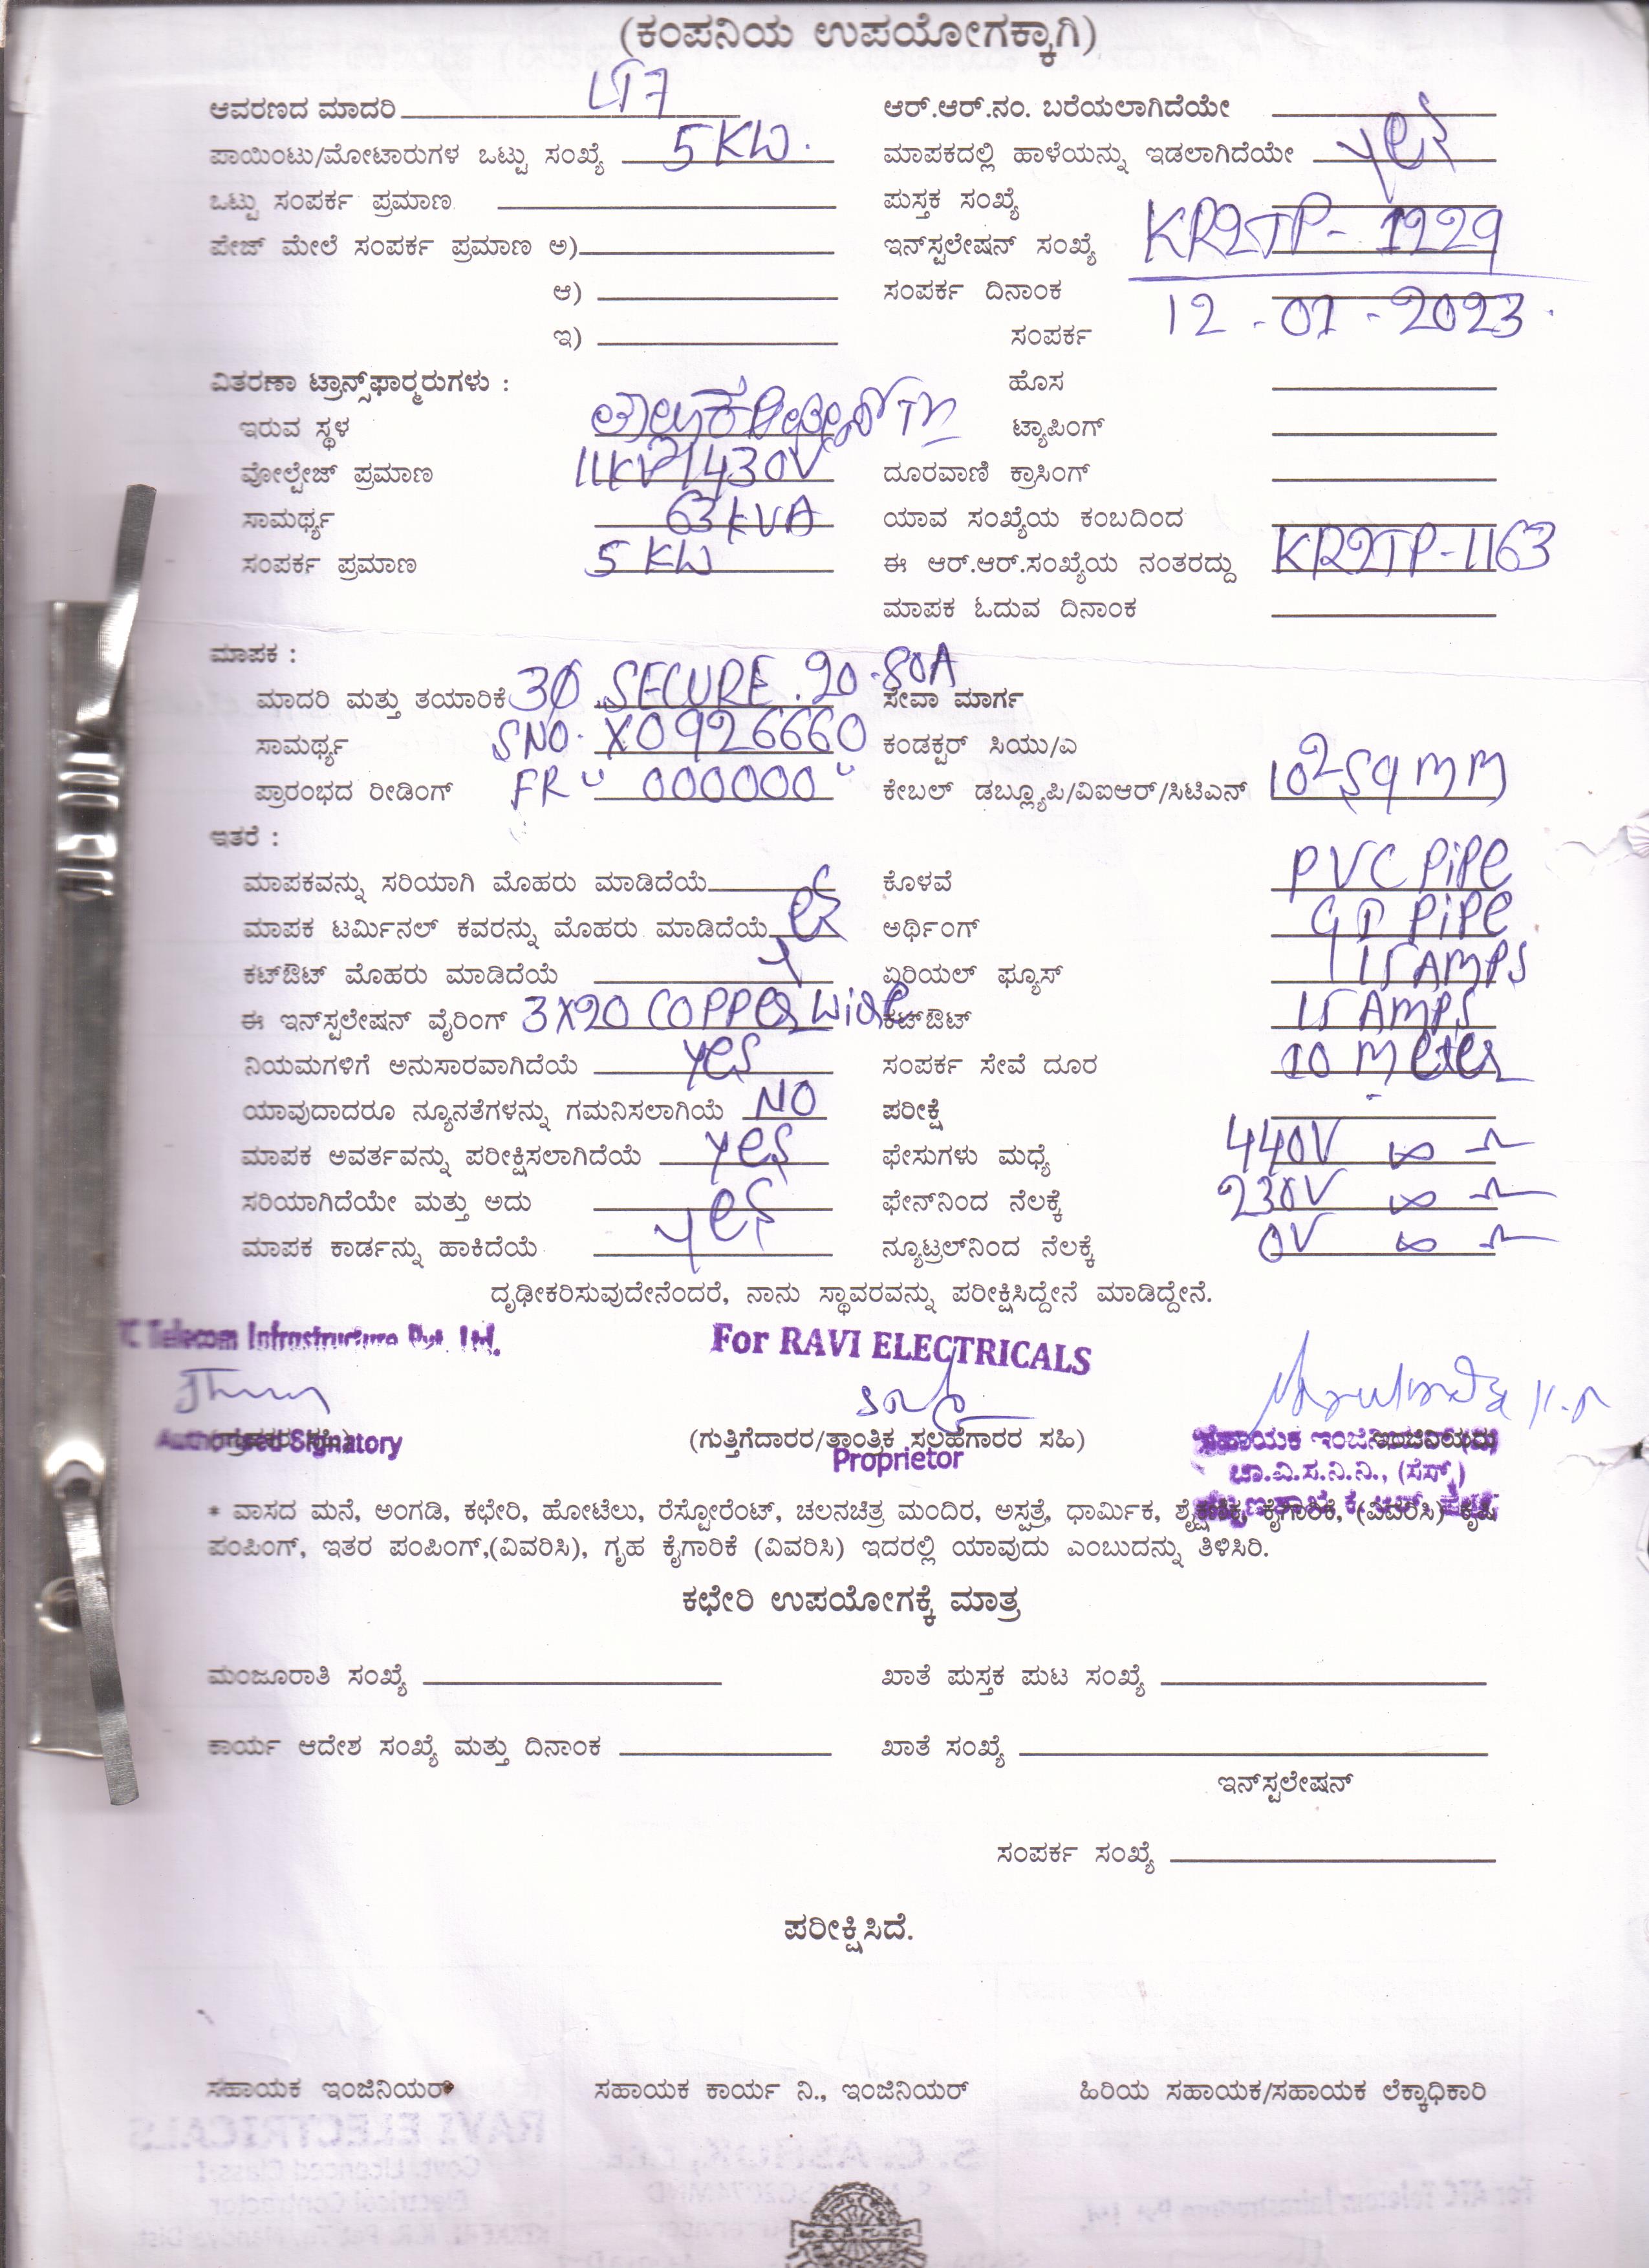 (ಕಂಪನಿಯ ಉಪಯೋಗಕ್ಕಾಗಿ)
ಆವರಣದ ಮಾದರಿ LT7 ಆರ್.ಆರ್.ನಂ. ಬರೆಯಲಾಗಿದೆಯೇ
ಪಾಯಿಂಟು/ಮೋಟಾರುಗಳ ಒಟ್ಟು ಸಂಖ್ಯೆ 5 KW. ಮಾಪಕದಲ್ಲಿ ಹಾಳೆಯನ್ನು ಇಡಲಾಗಿದೆಯೇ yes
ಒಟ್ಟು ಸಂಪರ್ಕ ಪ್ರಮಾಣ ಪುಸ್ತಕ ಸಂಖ್ಯೆ
ಪೇಜ್ ಮೇಲೆ ಸಂಪರ್ಕ ಪ್ರಮಾಣ ಅ) ಇನ್‌ಸ್ಟಲೇಷನ್ ಸಂಖ್ಯೆ KR2TP- 1229
ಆ) ಸಂಪರ್ಕ ದಿನಾಂಕ 12-01-2023.
ಇ) ಸಂಪರ್ಕ
ವಿತರಣಾ ಟ್ರಾನ್ಸ್‌ಫಾರ್ಮರುಗಳು : ಹೊಸ
ಇರುವ ಸ್ಥಳ ಟ್ಯಾಪಿಂಗ್
ವೋಲ್ಟೇಜ್ ಪ್ರಮಾಣ 11KV/430V ದೂರವಾಣಿ ಕ್ರಾಸಿಂಗ್
ಸಾಮರ್ಥ್ಯ 63KVA ಯಾವ ಸಂಖ್ಯೆಯ ಕಂಬದಿಂದ
ಸಂಪರ್ಕ ಪ್ರಮಾಣ 5 KW ಈ ಆರ್.ಆರ್.ಸಂಖ್ಯೆಯ ನಂತರದ್ದು KR2TP-1163
ಮಾಪಕ ಓದುವ ದಿನಾಂಕ
ಮಾಪಕ :
ಮಾದರಿ ಮತ್ತು ತಯಾರಿಕೆ 3Ø SECURE. 20-80A ಸೇವಾ ಮಾರ್ಗ
ಸಾಮರ್ಥ್ಯ SNO. X0926660 ಕಂಡಕ್ಟರ್ ಸಿಯು/ಎ
ಪ್ರಾರಂಭದ ರೀಡಿಂಗ್ FR " 000000 " ಕೇಬಲ್ ಡಬ್ಲ್ಯೂಪಿ/ವಿಐಆರ್/ಸಿಟಿಎನ್ 10 sqmm
ಇತರೆ :
ಮಾಪಕವನ್ನು ಸರಿಯಾಗಿ ಮೊಹರು ಮಾಡಿದೆಯೆ ಕೊಳವೆ PVC Pipe
ಮಾಪಕ ಟರ್ಮಿನಲ್ ಕವರನ್ನು ಮೊಹರು ಮಾಡಿದೆಯೆ yes ಅರ್ಥಿಂಗ್ GI Pipe
ಕಟ್‌ಔಟ್ ಮೊಹರು ಮಾಡಿದೆಯೆ ಏರಿಯಲ್ ಫ್ಯೂಸ್ 15 AMPS
ಈ ಇನ್‌ಸ್ಟಲೇಷನ್ ವೈರಿಂಗ್ 3X20 COPPER Wire ಕಟ್‌ಔಟ್ 15 AMPS
ನಿಯಮಗಳಿಗೆ ಅನುಸಾರವಾಗಿದೆಯೆ yes ಸಂಪರ್ಕ ಸೇವೆ ದೂರ 10 meter
ಯಾವುದಾದರೂ ನ್ಯೂನತೆಗಳನ್ನು ಗಮನಿಸಲಾಗಿಯೆ NO ಪರೀಕ್ಷೆ
ಮಾಪಕ ಅವರ್ತವನ್ನು ಪರೀಕ್ಷಿಸಲಾಗಿದೆಯೆ yes ಫೇಸುಗಳು ಮಧ್ಯೆ 440V ∞ Ω
ಸರಿಯಾಗಿದೆಯೇ ಮತ್ತು ಅದು ಫೇನ್‌ನಿಂದ ನೆಲಕ್ಕೆ 230V ∞ Ω
ಮಾಪಕ ಕಾರ್ಡನ್ನು ಹಾಕಿದೆಯೆ yes ನ್ಯೂಟ್ರಲ್‌ನಿಂದ ನೆಲಕ್ಕೆ 0V ∞ Ω
ದೃಢೀಕರಿಸುವುದೇನೆಂದರೆ, ನಾನು ಸ್ಥಾವರವನ್ನು ಪರೀಕ್ಷಿಸಿದ್ದೇನೆ ಮಾಡಿದ್ದೇನೆ.
TC Telecom Infrastructure Pvt. Ltd. For RAVI ELECTRICALS
Authorised Signatory (ಗುತ್ತಿಗೆದಾರರ/ತಾಂತ್ರಿಕ ಸಲಹೆಗಾರರ ಸಹಿ) ಸಹಾಯಕ
Proprietor ಚಾ.ವಿ.ಸ.ನಿ.ನಿ., (ಸೆಸ್ಕ್)
* ವಾಸದ ಮನೆ, ಅಂಗಡಿ, ಕಛೇರಿ, ಹೋಟೆಲು, ರೆಸ್ಟೋರೆಂಟ್, ಚಲನಚಿತ್ರ ಮಂದಿರ, ಅಸ್ಪತ್ರೆ, ಧಾರ್ಮಿಕ, ಕೈಗಾರಿಕೆ, (ವಿವರಿಸಿ) ಕೃಷಿ
ಪಂಪಿಂಗ್, ಇತರ ಪಂಪಿಂಗ್,(ವಿವರಿಸಿ), ಗೃಹ ಕೈಗಾರಿಕೆ (ವಿವರಿಸಿ) ಇದರಲ್ಲಿ ಯಾವುದು ಎಂಬುದನ್ನು ತಿಳಿಸಿರಿ.
ಕಛೇರಿ ಉಪಯೋಗಕ್ಕೆ ಮಾತ್ರ
ಮಂಜೂರಾತಿ ಸಂಖ್ಯೆ ಖಾತೆ ಪುಸ್ತಕ ಪುಟ ಸಂಖ್ಯೆ
ಕಾರ್ಯ ಆದೇಶ ಸಂಖ್ಯೆ ಮತ್ತು ದಿನಾಂಕ ಖಾತೆ ಸಂಖ್ಯೆ
ಇನ್‌ಸ್ಟಲೇಷನ್
ಸಂಪರ್ಕ ಸಂಖ್ಯೆ
ಪರೀಕ್ಷಿಸಿದೆ.
ಸಹಾಯಕ ಇಂಜಿನಿಯರ್ ಸಹಾಯಕ ಕಾರ್ಯ ನಿ., ಇಂಜಿನಿಯರ್ ಹಿರಿಯ ಸಹಾಯಕ/ಸಹಾಯಕ ಲೆಕ್ಕಾಧಿಕಾರಿ